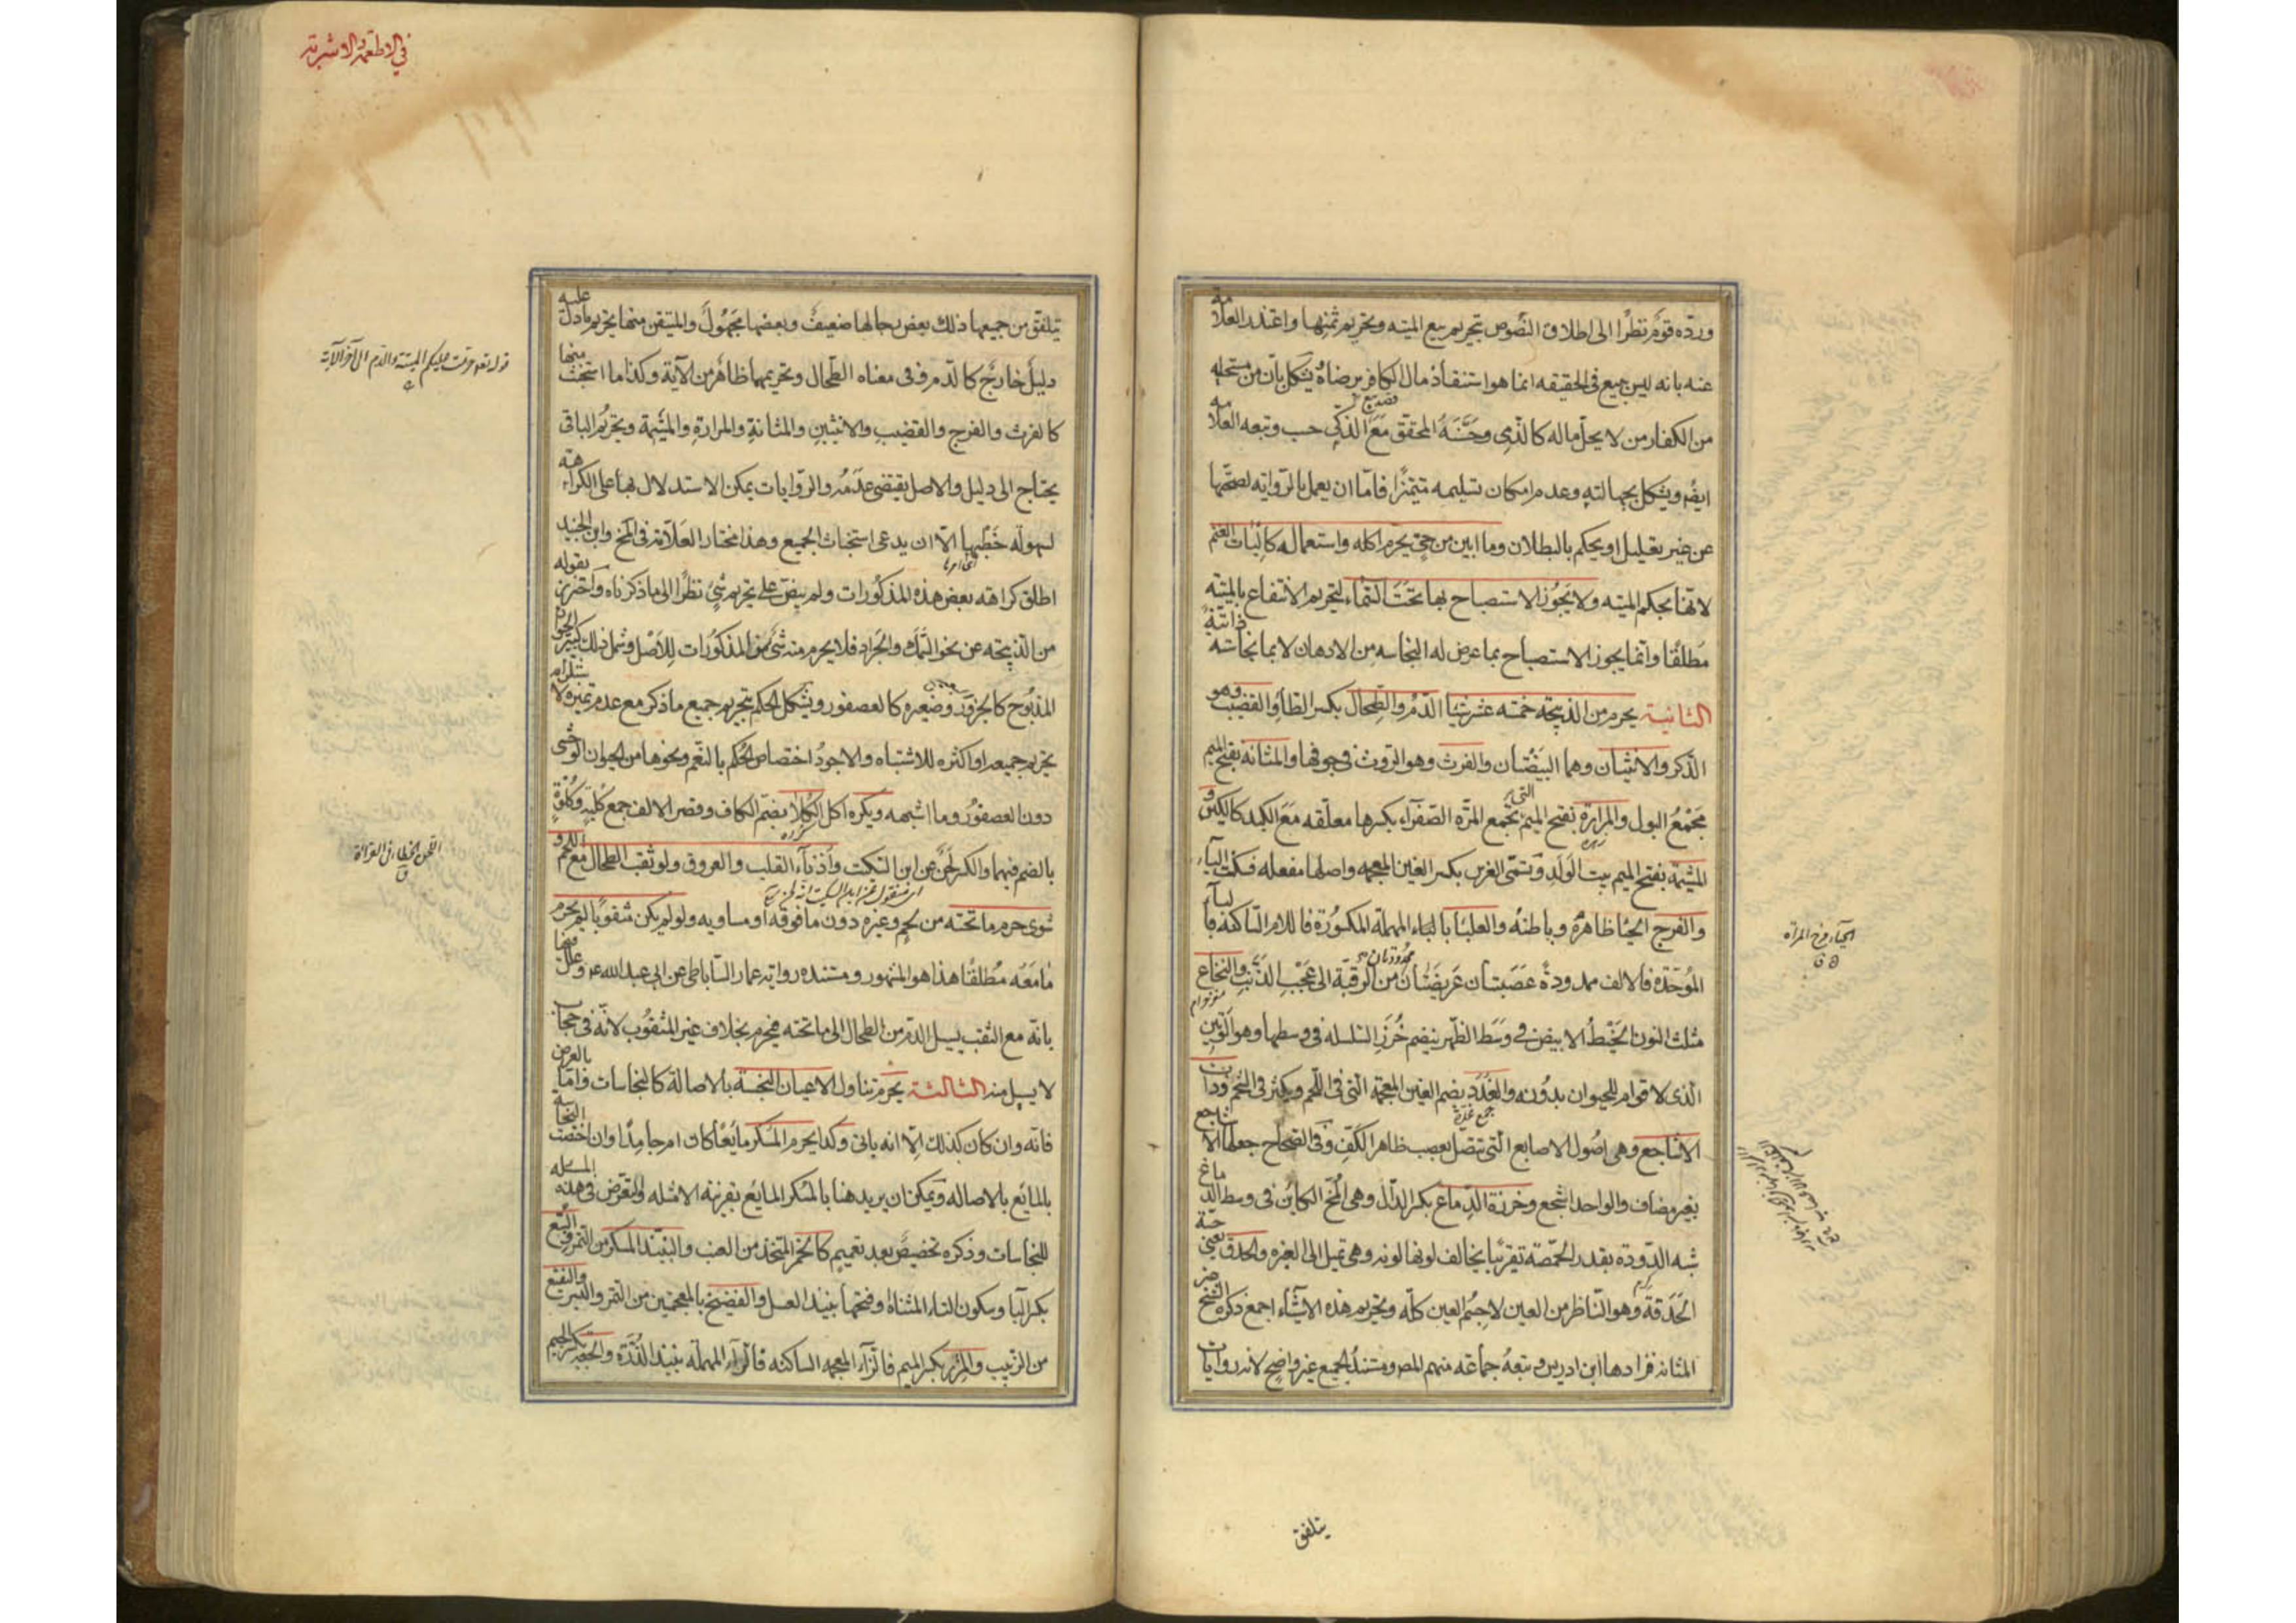 ورده قوم نظرا الى اطلاق النصوص بتحريم بيع الميته وتحريم ثمنها واعتذر العلامه
عنه بانه ليس ببيع فى الحقيقه انما هو استنقاذ مال الكافر برضاه ويشكل بان من مستحليه
من الكفار من لا يحل ماله كالذمى وحسنه المحقق مع قصد بيع الذكى حسب وتبعه العلامه
ايضا ويشكل بجهالته وعدم امكان تسليمه متميزا فاما ان يعمل بالروايه لصحتها
من غير تعليل او يحكم بالبطلان وما ابين من حى يحرم اكله واستعماله كاليات الغنم
لانها بحكم الميته ولا يجوز الاستصباح بها تحت السماء لتحريم الانتفاع بالميته
مطلقا وانما يجوز الاستصباح بما عرض له النجاسه من الادهان لا بما نجاسته ذاتية
الثانية يحرم من الذبيحه خمسه عشر شيئا الدم والطحال بكسر الطاء والقضيب وهو
الذكر والانثيان وهما البيضتان والفرث وهو الروث فى جوفها والمثانه بفتح الميم
مجمع البول والمرارة بفتح الميم التى تجمع المرة الصفراء بكسرها معلقه مع الكبد كالكيس و
المشيمة بفتح الميم بيت الولد وتسمى الغرس بكسر الغين المعجمه واصلها مفعله فسكنت الياء
والفرج الحيا ظاهره وباطنه والعلباء بالعين المهملة المكسورة فاللام الساكنه فالباء
الموحدة فالالف ممدودة عصبتان عريضتان ممدودتان من الرقبة الى عجب الذنب والنخاع
مثلث النون الخيط الابيض فى وسط الظهر ينضم خرز السلسله فى وسطها وهو الوتين
الذى لا قوام للحيوان بدونه والغدد بضم الغين المعجمة التى فى اللحم ويكثر فى الشحم وذات
جمع غدة
الاشاجع وهى اصول الاصابع التى تتصل بعصب ظاهر الكف وفى الصحاح جعلها الاشاجع
بغير مضاف والواحد اشجع وخرزة الدماغ بكسر الدال وهى المخ الكاين فى وسط الدماغ
شبه الدودة بقدر الحمصة تقريبا يخالف لونها لونه وهى تميل الى الغبره والحدق يعنى حبة
الحدقة وهو الناظر من العين لا جسم العين كله وتحريم هذه الاشياء اجمع ذكره الشيخ غير
المثانه فزادها ابن ادريس وتبعه جماعه منهم المصر ومستند الجميع غير واضح لانه روايات
الحياء فرج المرأة
يتلفق
فى الاطعمة والاشربة
يتلفق من جميعها ذلك بعض رجالها ضعيف وبعضها مجهول والمتيقن منها تحريم ما دل عليه
دليل خارج كالدم وفى معناه الطحال وتحريمهما ظاهر من الآية وكذا ما استخبث منها
كالفرث والفرج والقضيب والانثيين والمثانة والمرارة والمشيمة وتحريم الباقى
يحتاج الى دليل والاصل يقتضى عدمه والروايات يمكن الاستدلال بها على الكراهة
لسهوله خطبها الا ان يدعى استخباث الجميع وهذا مختار العلامة فى المخ وابن الجنيد
اطلق كراهته بعض هذه المذكورات ولم ينص على تحريم شئ نظرا الى ما ذكرناه واحترز بقوله
من الذبيحته عن نحو السمك والجراد فلا يحرم منه شئ من المذكورات للاصل وشمل ذلك كبير الحيوان
المذبوح كالجزور وصغيره كالعصفور ويشكل الحكم بتحريم جميع ما ذكر مع عدم تميزه لاستلزام
تحريم جميعه او اكثره للاشتباه والاجود اختصاص الحكم بالنعم ونحوها من الحيوان الوحشى
دون العصفور وما اشبهه ويكره اكل الكلا بضم الكاف وقصر الالف جمع كلية وكلوة
بالضم فيهما والكسر لحن عن ابن السكيت واذنا القلب والعروق ولو ثقب الطحال مع اللحم و
شوى حرم ما تحته من لحم وغيره دون ما فوقه او مساويه ولو لم يكن مثقوبا لم يحرم
ما معه مطلقا هذا هو المشهور ومستنده روايه عمار الساباطى عن ابى عبد الله ع وعلل فيها
بانه مع الثقب يسيل الدم من الطحال الى ما تحته فيحرم بخلاف غير المثقوب لانه فى حجاب
لا يسيل منه الثالثة يحرم تناول الاعيان النجسة بالاصالة كالنجاسات واما بالعرض
فانه وان كان كذلك الا انه ياتى وكذا يحرم المسكر مايعا كان ام جامدا وان اختصت النجاسه
بالمايع بالاصاله ويمكن ان يريد هنا بالمسكر المايع بقرينة الامثله والتعرض فى هذه المسئله
للنجاسات وذكره تخصيص بعد تعميم كالخمر المتخذ من العنب والنبيذ المسكر من التمر والبتع
بكسر الباء وسكون التاء المثناة وفتحها نبيذ العسل والفضيخ بالمعجمتين من التمر والبسر والنقيع
من الزبيب والمزر بكسر الميم فالزاء المعجمه الساكنه فالراء المهملة نبيذ الذرة والجعه بكسر الجيم
قوله تعم حرمت عليكم الميتة والدم الى آخر الآية
اللحن الخطا فى القراءة
ق